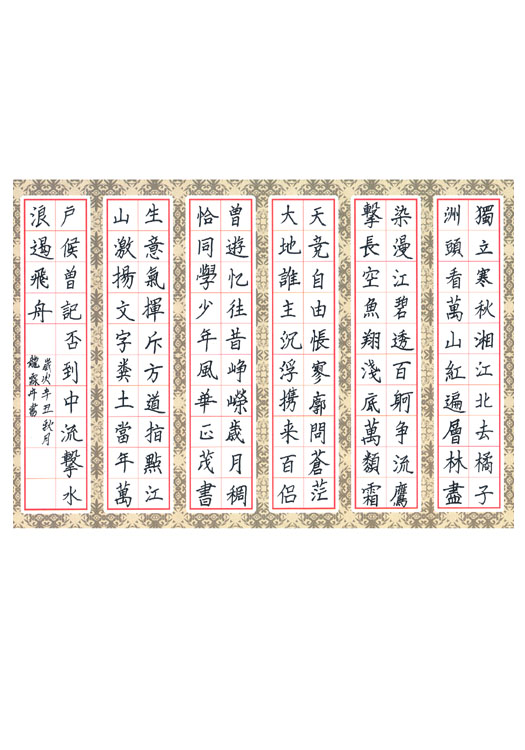 獨立寒秋湘江北去橘子
洲頭看萬山紅遍層林盡
染漫江碧透百舸争流鷹
擊長空魚翔淺底萬類霜
天竞自由悵寥廓問蒼茫
大地誰主沉浮携来百侣
曾遊忆往昔峥嶸歲月稠
恰同學少年風華正茂書
生意氣揮斥方遒指點江
山激揚文字糞土當年萬
户侯曾記否到中流擊水
浪遏飛舟
歲次辛丑秋月
龍